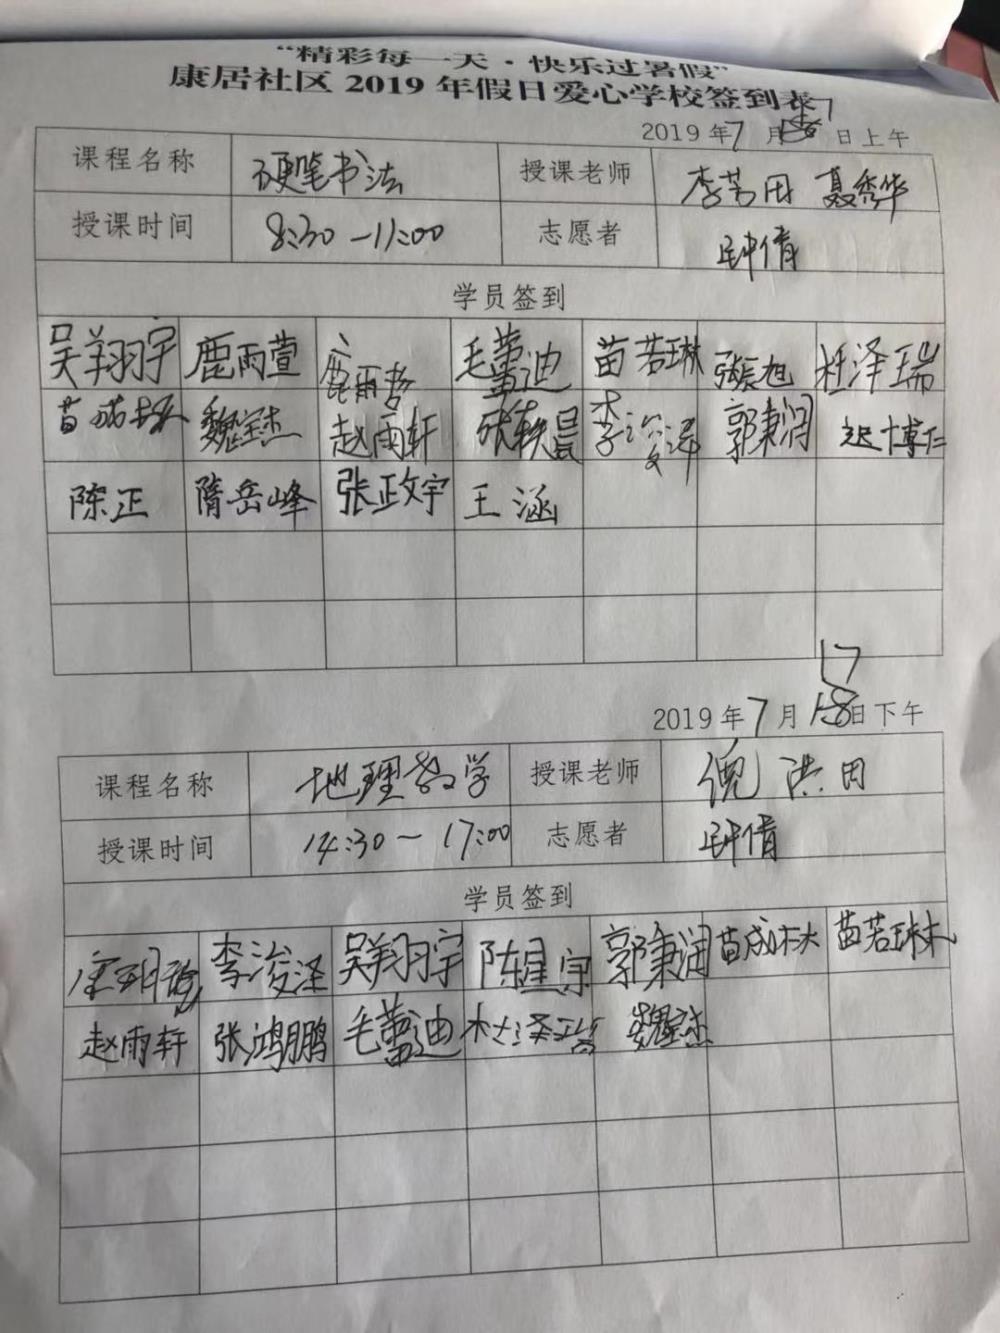 “精彩每一天·快乐过暑假”
康居社区 2019 年假日爱心学校签到表
2019 年 7 月 17 日上午
课程名称 硬笔书法 授课老师 李芳田 聂秀华
授课时间 8:30-11:00 志愿者 钟倩
学员签到
吴翔宇 鹿雨萱 鹿雨 毛蕾迪 苗若琳 张辰旭 杜泽瑞
苗成林 魏宝杰 赵雨轩 张轶晨 李浚泽 郭秉润 迟博仁
陈正 隋岳峰 张政宇 王涵
2019 年 7 月 17 日下午
课程名称 地理教学 授课老师 倪洪田
授课时间 14:30~17:00 志愿者 钟倩
学员签到
李浚泽 吴翔宇 陈星宗 郭秉润 苗成林 苗若琳
赵雨轩 张鸿鹏 毛蕾迪 杜泽瑞 魏宝杰